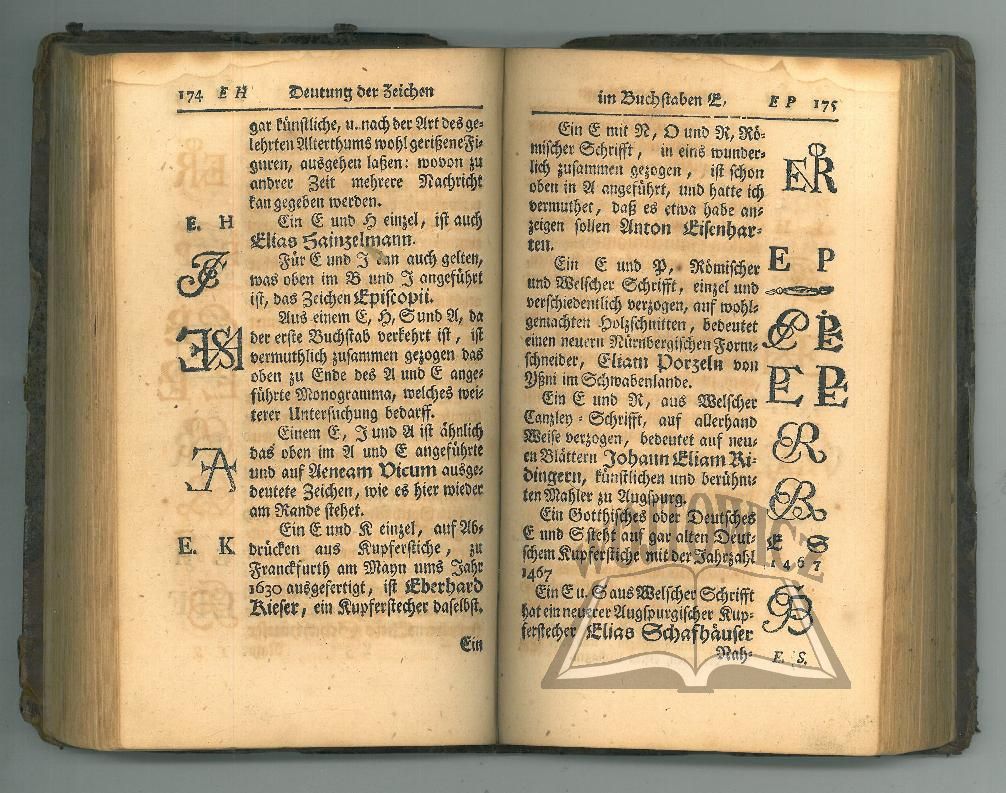 174 E H Deutung der Zeichen
gar künstliche, u. nach der Art des ge-
lehrten Alterthums wohl gerißene Fi-
guren, ausgehen laßen: wovon zu
andrer Zeit mehrere Nachricht
kan gegeben werden.
E. H Ein E und H einzel, ist auch
Elias Hainzelmann.
Für E und J kan auch gelten,
was oben im B und J angeführt
ist, das Zeichen Episcopii.
Aus einem E, H, S und A, da
der erste Buchstab verkehrt ist, ist
vermuthlich zusammen gezogen das
oben zu Ende des A und E ange-
führte Monogramma, welches wei-
terer Untersuchung bedarff.
Einem E, J und A ist ähnlich
das oben im A und E angeführte
und auf Aeneam Vicum ausge-
deutete Zeichen, wie es hier wieder
am Rande stehet.
Ein E und K einzel, auf Ab-
E. K drücken aus Kupferstiche, zu
Franckfurth am Mayn ums Jahr
1630 ausgefertigt, ist Eberhard
Kieser, ein Kupferstecher daselbst.
Ein
im Buchstaben E. E P 175
Ein E mit N, O und R, Rö-
mischer Schrifft, in eins wunder-
lich zusammen gezogen, ist schon
oben in A angeführt, und hatte ich
vermuthet, daß es etwa habe an-
zeigen sollen Anton Eisenhar-
ten.
Ein E und P, Römischer E P
und Welscher Schrifft, einzel und
verschiedentlich verzogen, auf wohl-
gemachten Holzschnitten, bedeutet
einen neuern Nürnbergischen Form-
schneider, Eliam Porzeln von
Yßni im Schwabenlande.
Ein E und R, aus Welscher
Canzley-Schrifft, auf allerhand
Weise verzogen, bedeutet auf neu-
en Blättern Johann Eliam Ri-
dingern, künstlichen und berühm-
ten Mahler zu Augspurg.
Ein Gotthisches oder Deutsches
E und S steht auf gar alten Deut- E S
schem Kupferstiche mit der Jahrzahl 1467
1467
Ein E u. S aus Welscher Schrifft
hat ein neuerer Augspurgischer Kup-
ferstecher Elias Schafhäuser
Nah- E. S.
WU HOWICZ